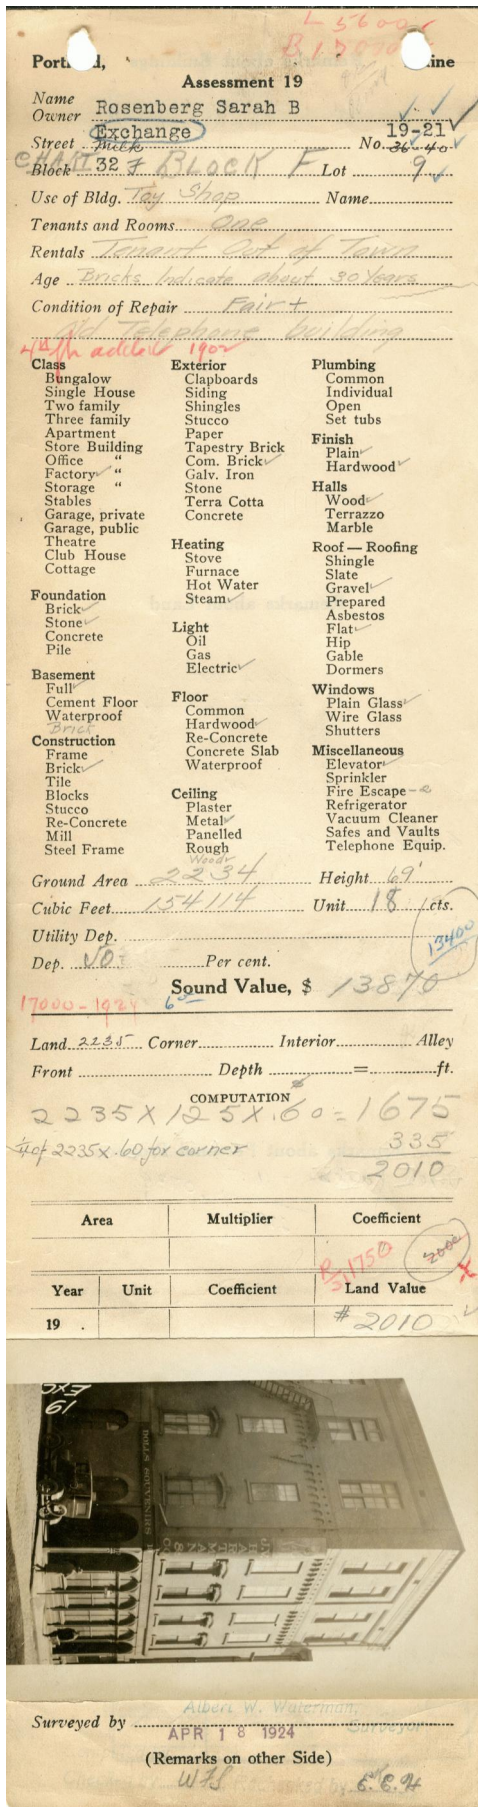 L 5600
B 17000
Portland, Maine
Assessment 19
Name
Owner Rosenberg Sarah B
Exchange 19-21
Street Milk No. 36-40
CHART Block 32 F BLOCK F Lot 9
Use of Bldg. Toy Shop Name
Tenants and Rooms One
Rentals Tenant Out of Town
Age Bricks Indicate about 30 Years
Condition of Repair Fair +
old Telephone building
4th fl. added 1902
Class
Bungalow
Single House
Two family
Three family
Apartment
Store Building
Office "
Factory "
Storage "
Stables
Garage, private
Garage, public
Theatre
Club House
Cottage
Foundation
Brick
Stone
Concrete
Pile
Basement
Full
Cement Floor
Waterproof
Brick
Construction
Frame
Brick
Tile
Blocks
Stucco
Re-Concrete
Mill
Steel Frame
Exterior
Clapboards
Siding
Shingles
Stucco
Paper
Tapestry Brick
Com. Brick
Galv. Iron
Stone
Terra Cotta
Concrete
Heating
Stove
Furnace
Hot Water
Steam
Light
Oil
Gas
Electric
Floor
Common
Hardwood
Re-Concrete
Concrete Slab
Waterproof
Ceiling
Plaster
Metal
Panelled
Rough
Wood
Plumbing
Common
Individual
Open
Set tubs
Finish
Plain
Hardwood
Halls
Wood
Terrazzo
Marble
Roof — Roofing
Shingle
Slate
Gravel
Prepared
Asbestos
Flat
Hip
Gable
Dormers
Windows
Plain Glass
Wire Glass
Shutters
Miscellaneous
Elevator
Sprinkler
Fire Escape - 2
Refrigerator
Vacuum Cleaner
Safes and Vaults
Telephone Equip.
Ground Area 2234 Height 69'
Cubic Feet 154114 Unit 18 cts.
Utility Dep.
13400
Dep. No Per cent.
Sound Value, $ 13870
17000-1924
Land 2235 Corner Interior Alley
Front Depth = ft.
COMPUTATION
2235 X 125 X .60 = 1675
1/4 of 2235 x .60 for corner 335
2010
Area Multiplier Coefficient
2000
1750
Year Unit Coefficient Land Value
19 . # 2010
19
EXC
DOLLS SOUVENIRS
Albert W. Waterman,
Surveyed by Surveyor
APR 18 1924
(Remarks on other Side)
WFS E.E.H